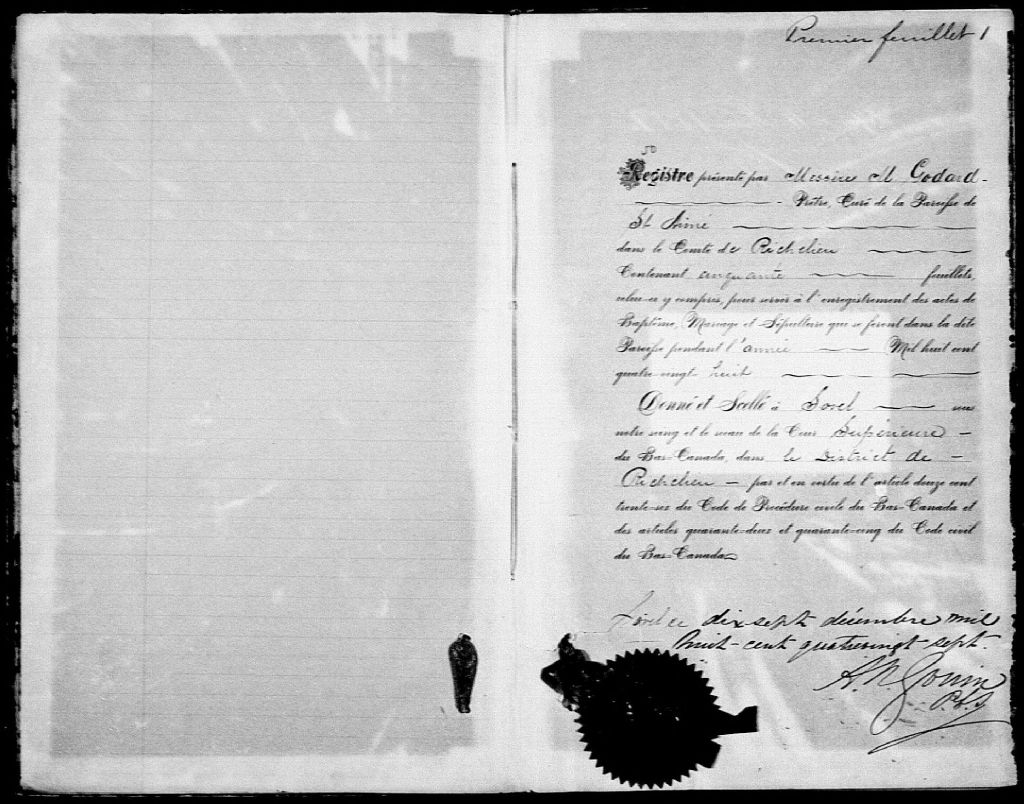 Premier feuillet 1
50
Registre présenté par Messire M Godard
Prêtre, Curé de la Paroisse de
St Aimé
dans le Comté de Richelieu
Contenant cinquante feuillets,
celui-ci y compris, pour servir à l'enregistrement des actes de
Baptême, Mariage et Sépulture que se feront dans la dite
Paroisse pendant l'année Mil huit cent
quatre-vingt huit
Donné et Scellé à Sorel sous
notre seing et le sceau de la Cour Supérieure
du Bas-Canada, dans le District de
Richelieu par et en vertu de l'article douze cent
trente-six du Code de Procédure civile du Bas-Canada et
des articles quarante-deux et quarante-cinq du Code civil
du Bas-Canada
Sorel ce dix-sept décembre mil
huit-cent quatrevingt-sept.
A. N. Gouin
P.C.S